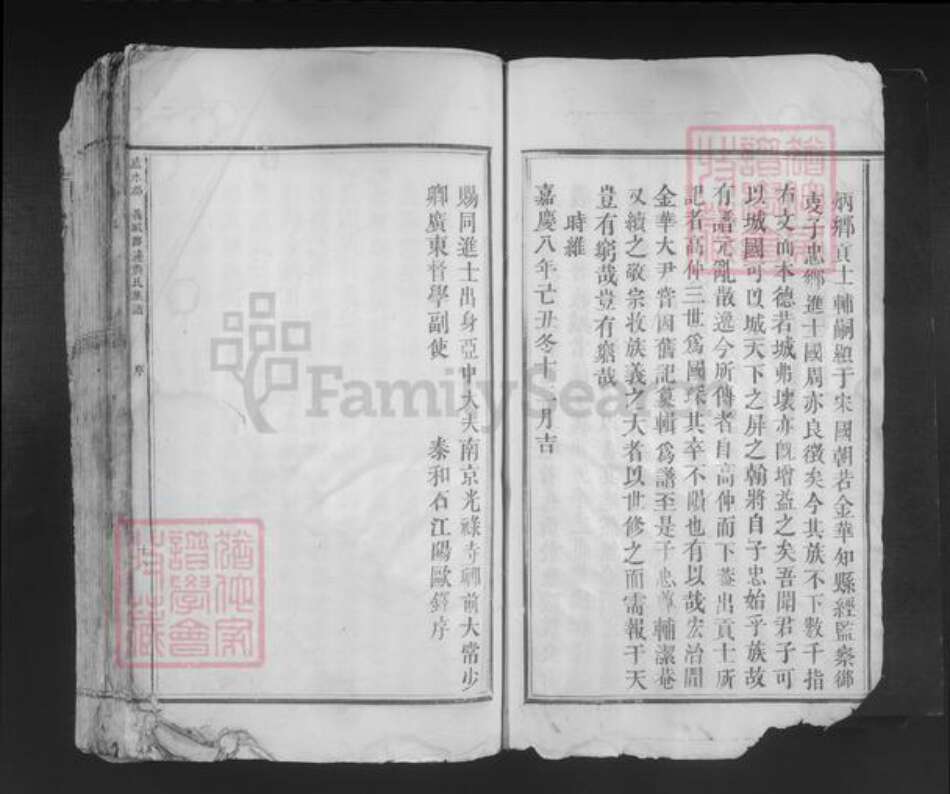 炳鄉貢士輔嗣顯于宋國朝若金華知縣經監察御
史子忠鄉進士國周亦良徵矣今其族不下數千指
右文而本德若城弗壞亦旣增益之矣吾聞君子可
以城國可以城天下之屏之翰將自子忠始乎族故
有譜元亂散逸今所傳者自高仲而下蓋出貢士所
記者高仲三世爲國琛其卒不隕也有以哉宏治間
金華大尹嘗因舊記彙輯爲譜至是子忠尊輔潔菴
又續之敬宗收族義之大者以世修之而需報于天
豈有窮哉豈有窮哉
時維
嘉慶八年己丑冬十一月吉
賜同進士出身亞中大夫南京光祿寺卿前大常少
卿廣東督學副使 泰和石江陽歐鐸序
氏族譜 序
FamilySearch